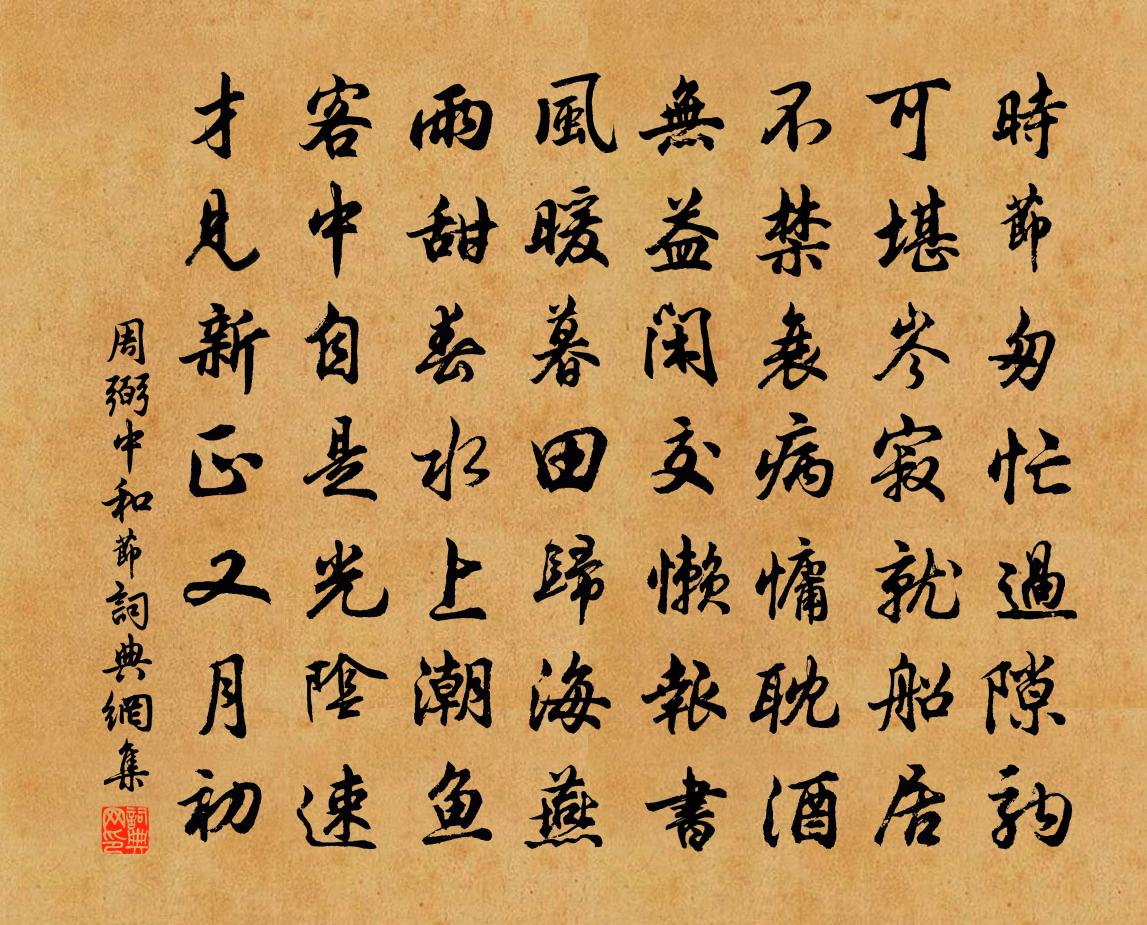 時節匆忙過隙駒
可堪岑寂就船居
不禁衰病慵耽酒
無益閑交懶報書
風暖暮田歸海燕
雨甜春水上潮魚
客中自是光陰速
才見新正又月初
周弼中和節詞典網集
詞典网印